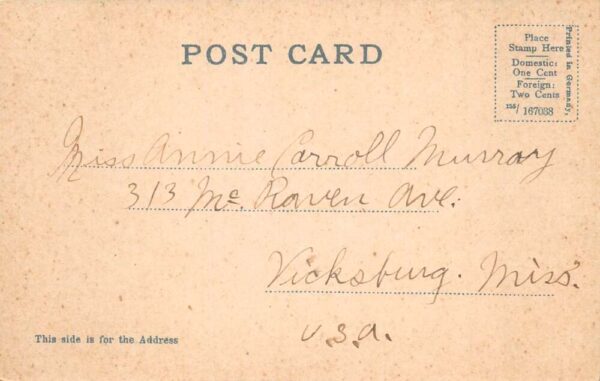 POST CARD
Place
Stamp Here
Domestic:
One Cent
Foreign:
Two Cents
155/ 167038
Printed in Germany.
Miss Annie Carroll Murray
313 Mc Raven Ave.
Vicksburg. Miss.
U.S.A.
This side is for the Address